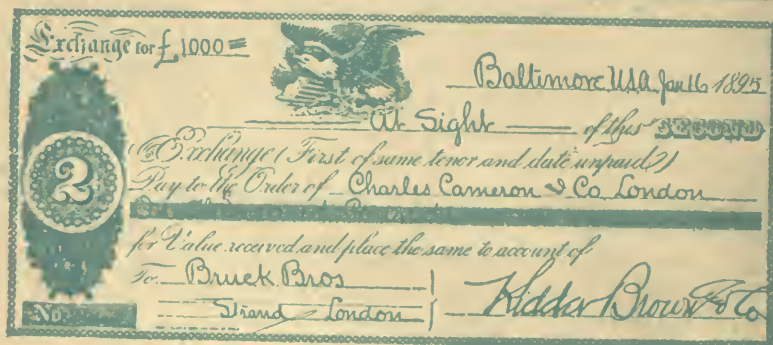 Exchange for £1000=
Baltimore USA Jan 16 1895
At Sight of this SECOND
of Exchange (First of same tenor and date unpaid)
2
Pay to the Order of Charles Cameron & Co. London
for Value received and place the same to account of
To Bruck Bros
Strand London
Kidder Brown & Co
No.